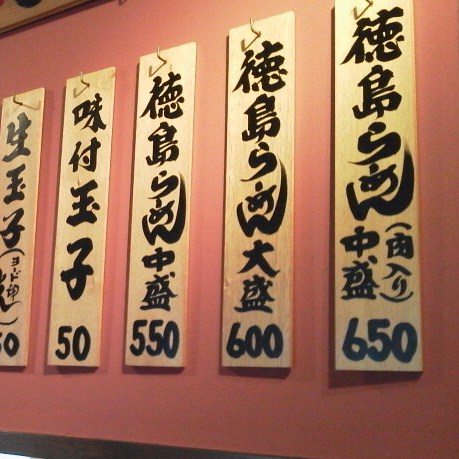 徳島らーめん中盛(肉入り)
650
徳島らーめん大盛
600
徳島らーめん中盛
550
味付玉子
50
生玉子(ヨード卵
50